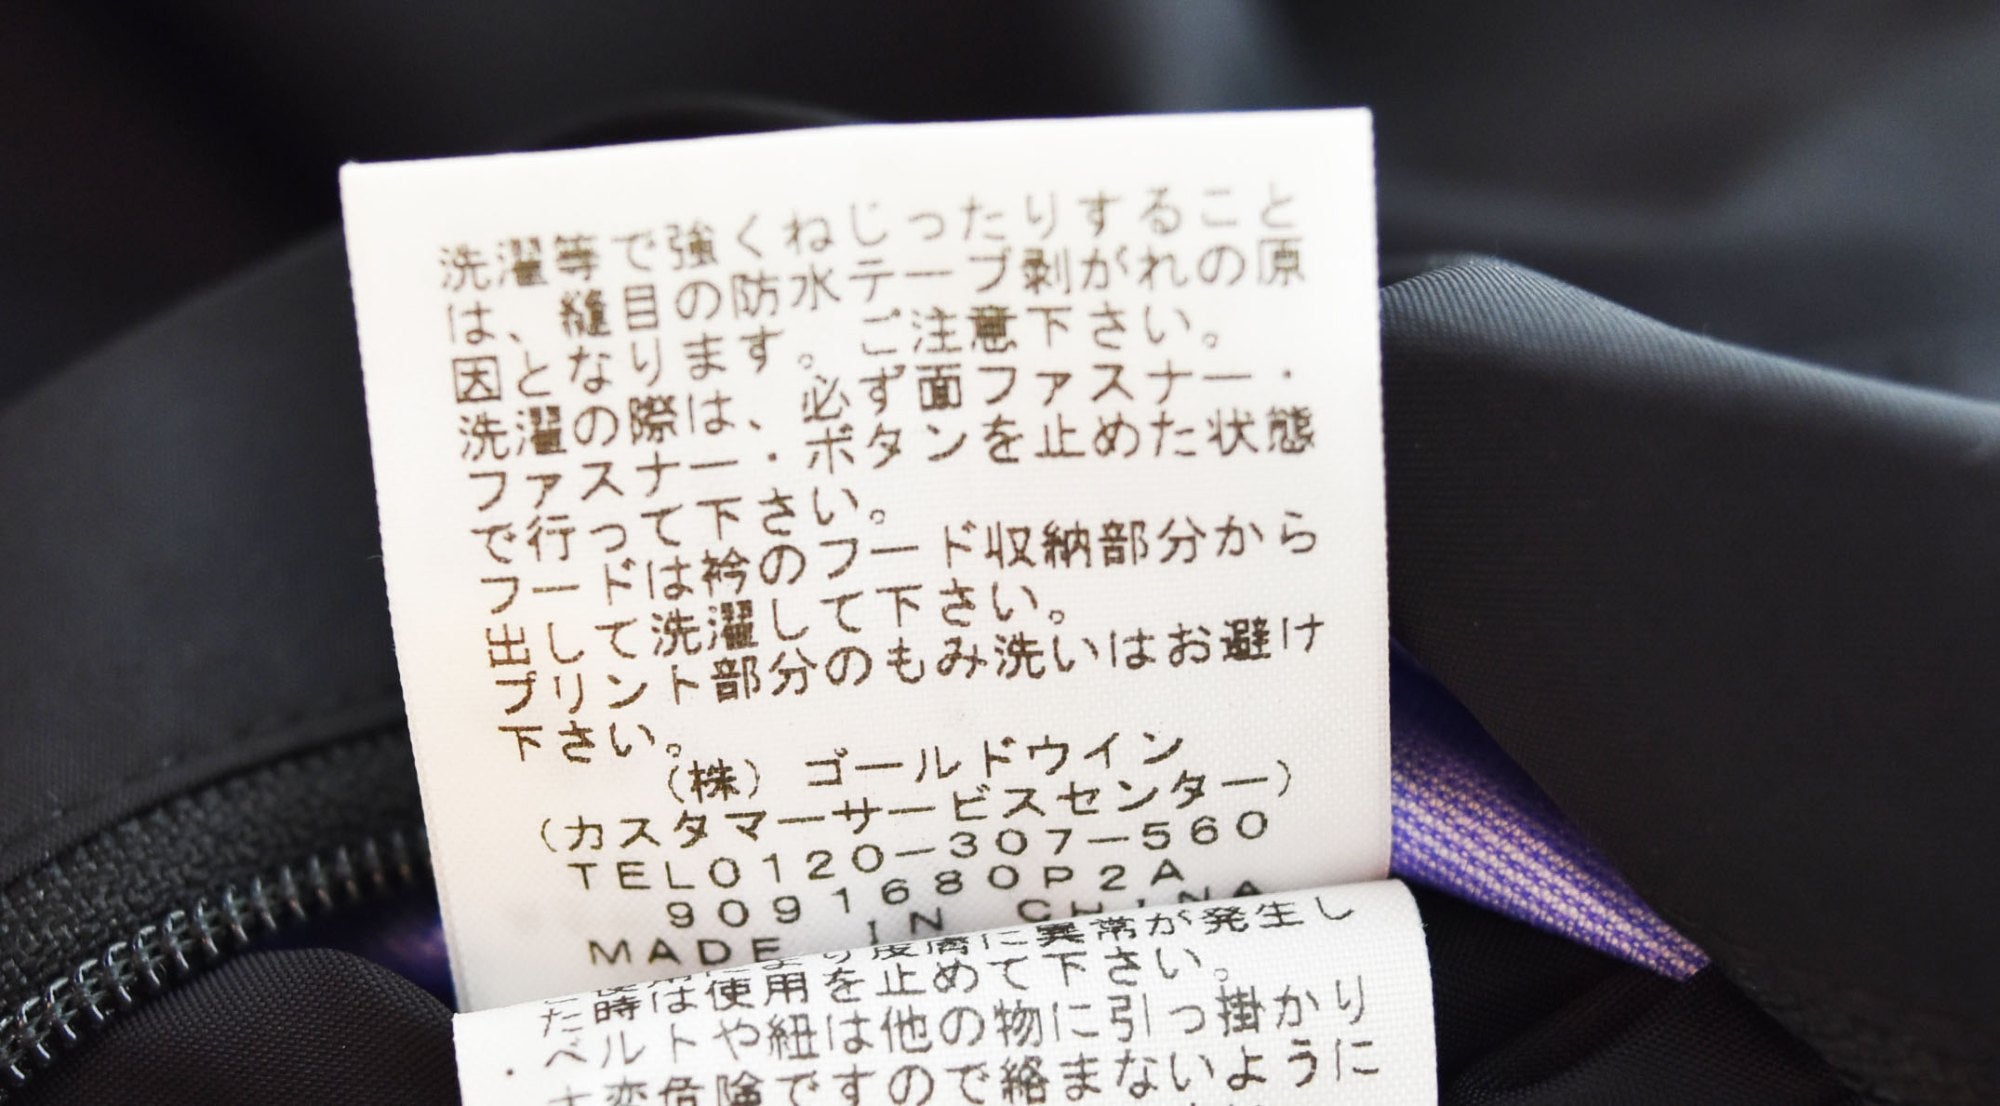 洗濯等で強くねじったりすること
は、縫目の防水テープ剥がれの原
因となります。ご注意下さい。
洗濯の際は、必ず面ファスナー・
ファスナー・ボタンを止めた状態
で行って下さい。
フードは衿のフード収納部分から
出して洗濯して下さい。
プリント部分のもみ洗いはお避け
下さい。
(株) ゴールドウイン
(カスタマーサービスセンター)
TEL0120-307-560
9091680P2A
MADE IN CHINA
により皮膚に異常が発生し
た時は使用を止めて下さい。
・ベルトや紐は他の物に引っ掛かり
大変危険ですので絡まないように